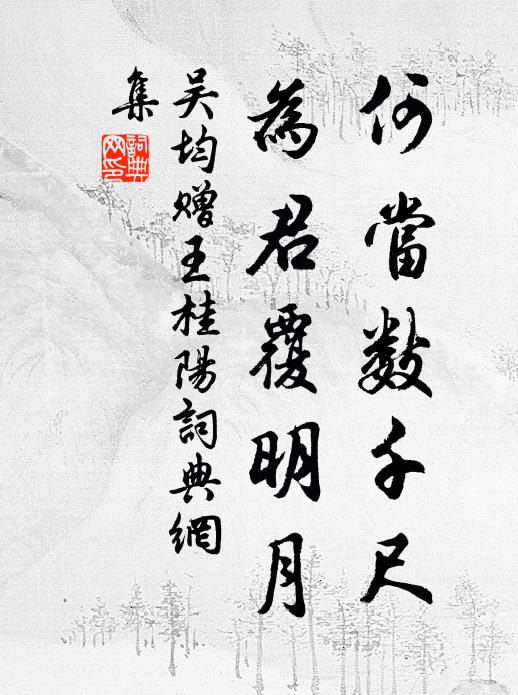 何當數千尺
為君覆明月
吳均贈王桂陽詞典網
集
詞典
网印